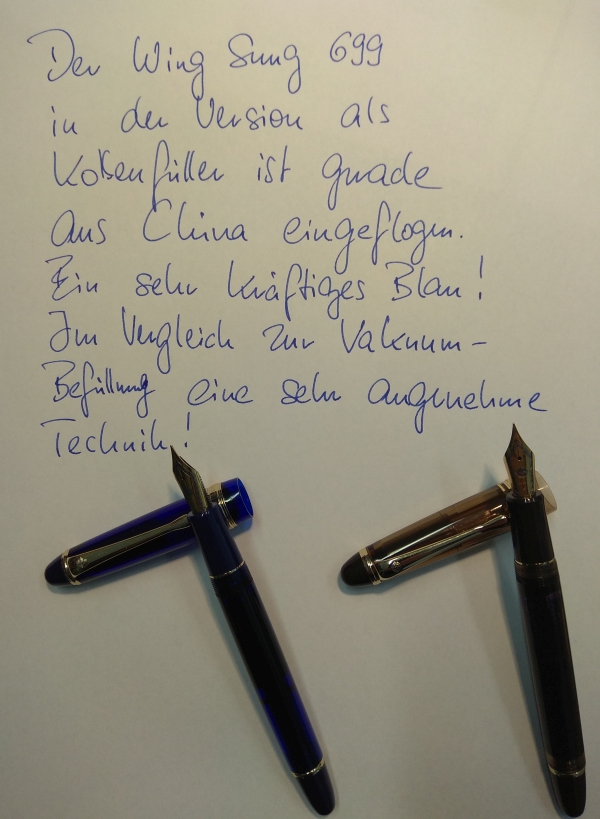 Der Wing Sung 699
in der Version als
Kolbenfüller ist gerade
aus China eingeflogen.
Ein sehr kräftiges Blau!
Im Vergleich zur Vakuum-
Befüllung eine sehr angenehme
Technik!